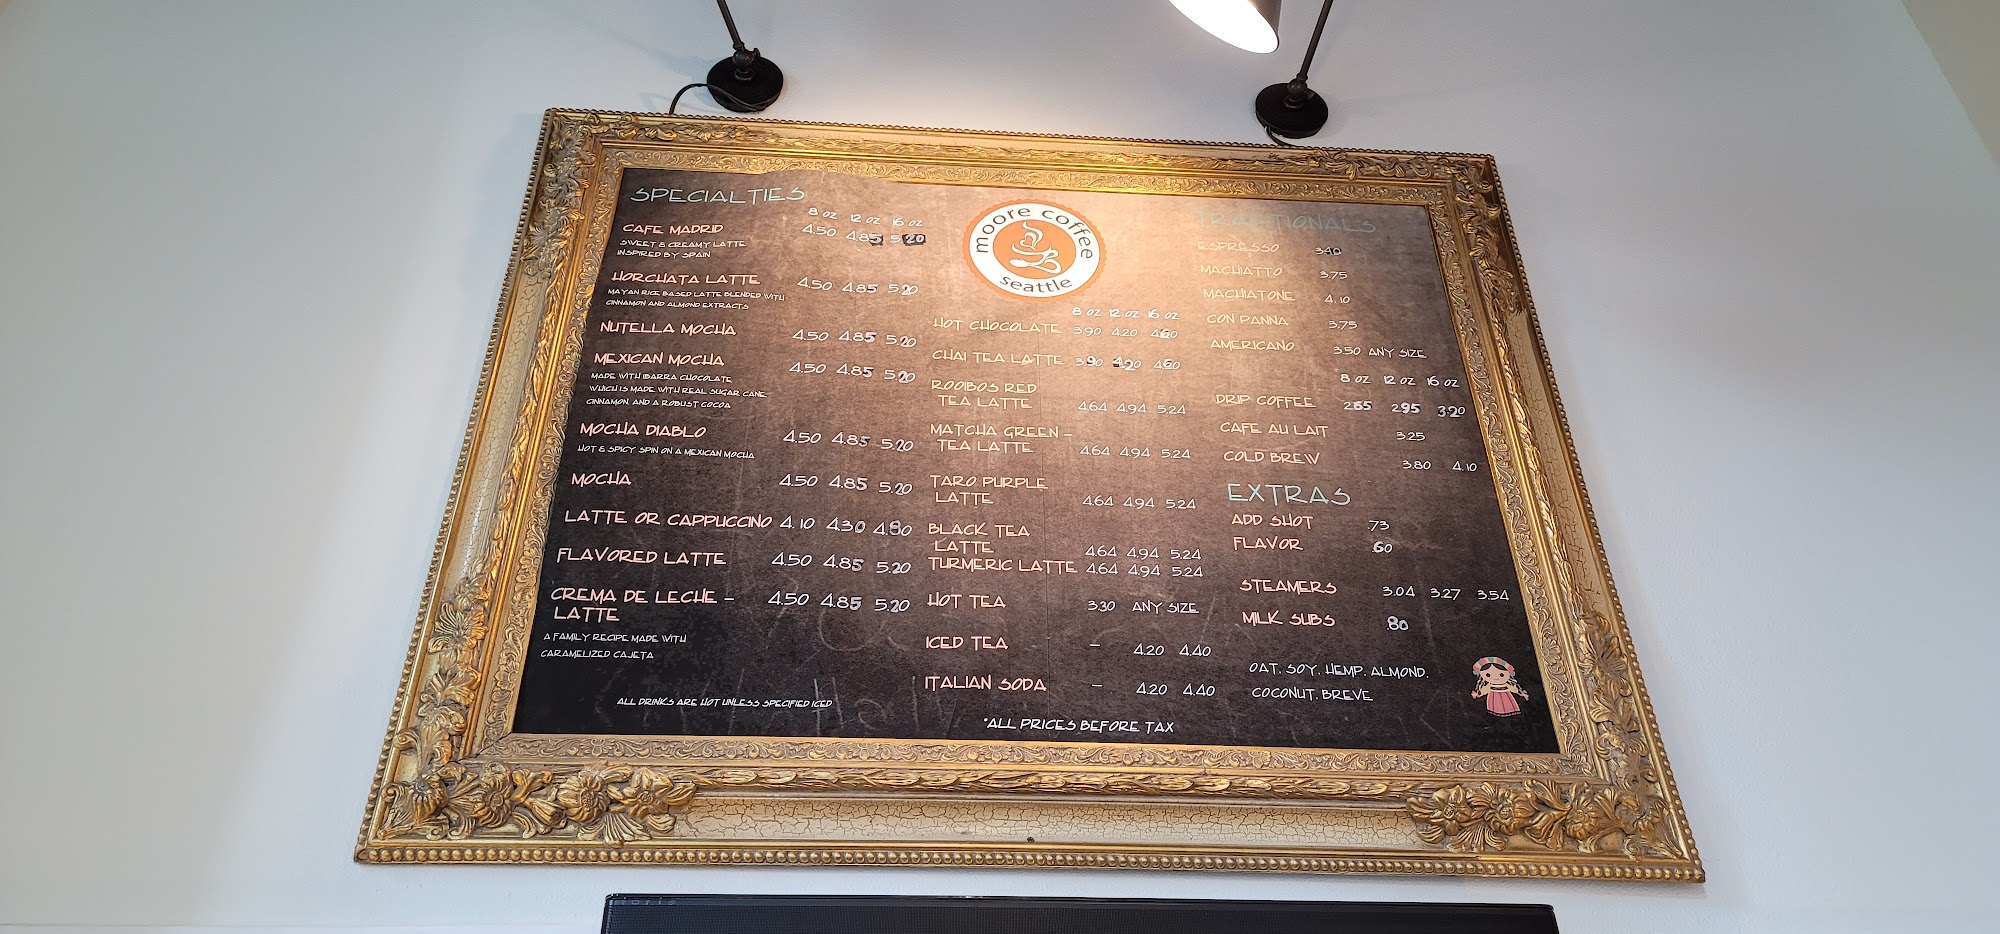 SPECIALTIES
8 OZ 12 OZ 16 OZ
CAFE MADRID 4.50 4.85 5.20
SWEET & CREAMY LATTE
INSPIRED BY SPAIN
HORCHATA LATTE 4.50 4.85 5.20
MAYAN RICE BASED LATTE BLENDED WITH
CINNAMON AND ALMOND EXTRACTS
NUTELLA MOCHA 4.50 4.85 5.20
MEXICAN MOCHA 4.50 4.85 5.20
MADE WITH IBARRA CHOCOLATE
WHICH IS MADE WITH REAL SUGAR CANE,
CINNAMON, AND A ROBUST COCOA
MOCHA DIABLO 4.50 4.85 5.20
HOT & SPICY SPIN ON A MEXICAN MOCHA
MOCHA 4.50 4.85 5.20
LATTE OR CAPPUCCINO 4.10 4.30 4.80
FLAVORED LATTE 4.50 4.85 5.20
CREMA DE LECHE - 4.50 4.85 5.20
LATTE
A FAMILY RECIPE MADE WITH
CARAMELIZED CAJETA
ALL DRINKS ARE HOT UNLESS SPECIFIED ICED
moore coffee
seattle
8 OZ 12 OZ 16 OZ
HOT CHOCOLATE 3.90 4.20 4.60
CHAI TEA LATTE 3.90 4.20 4.60
ROOIBOS RED
TEA LATTE 4.64 4.94 5.24
MATCHA GREEN -
TEA LATTE 4.64 4.94 5.24
TARO PURPLE
LATTE 4.64 4.94 5.24
BLACK TEA
LATTE 4.64 4.94 5.24
TURMERIC LATTE 4.64 4.94 5.24
HOT TEA 3.30 ANY SIZE
ICED TEA - 4.20 4.40
ITALIAN SODA - 4.20 4.40
*ALL PRICES BEFORE TAX
TRADITIONALS
ESPRESSO 3.40
MACHIATTO 3.75
MACHIATONE 4.10
CON PANNA 3.75
AMERICANO 3.50 ANY SIZE
8 OZ 12 OZ 16 OZ
DRIP COFFEE 2.65 2.95 3.20
CAFE AU LAIT 3.25
COLD BREW 3.80 4.10
EXTRAS
ADD SHOT .73
FLAVOR .60
STEAMERS 3.04 3.27 3.54
MILK SUBS .80
OAT, SOY, HEMP, ALMOND,
COCONUT, BREVE